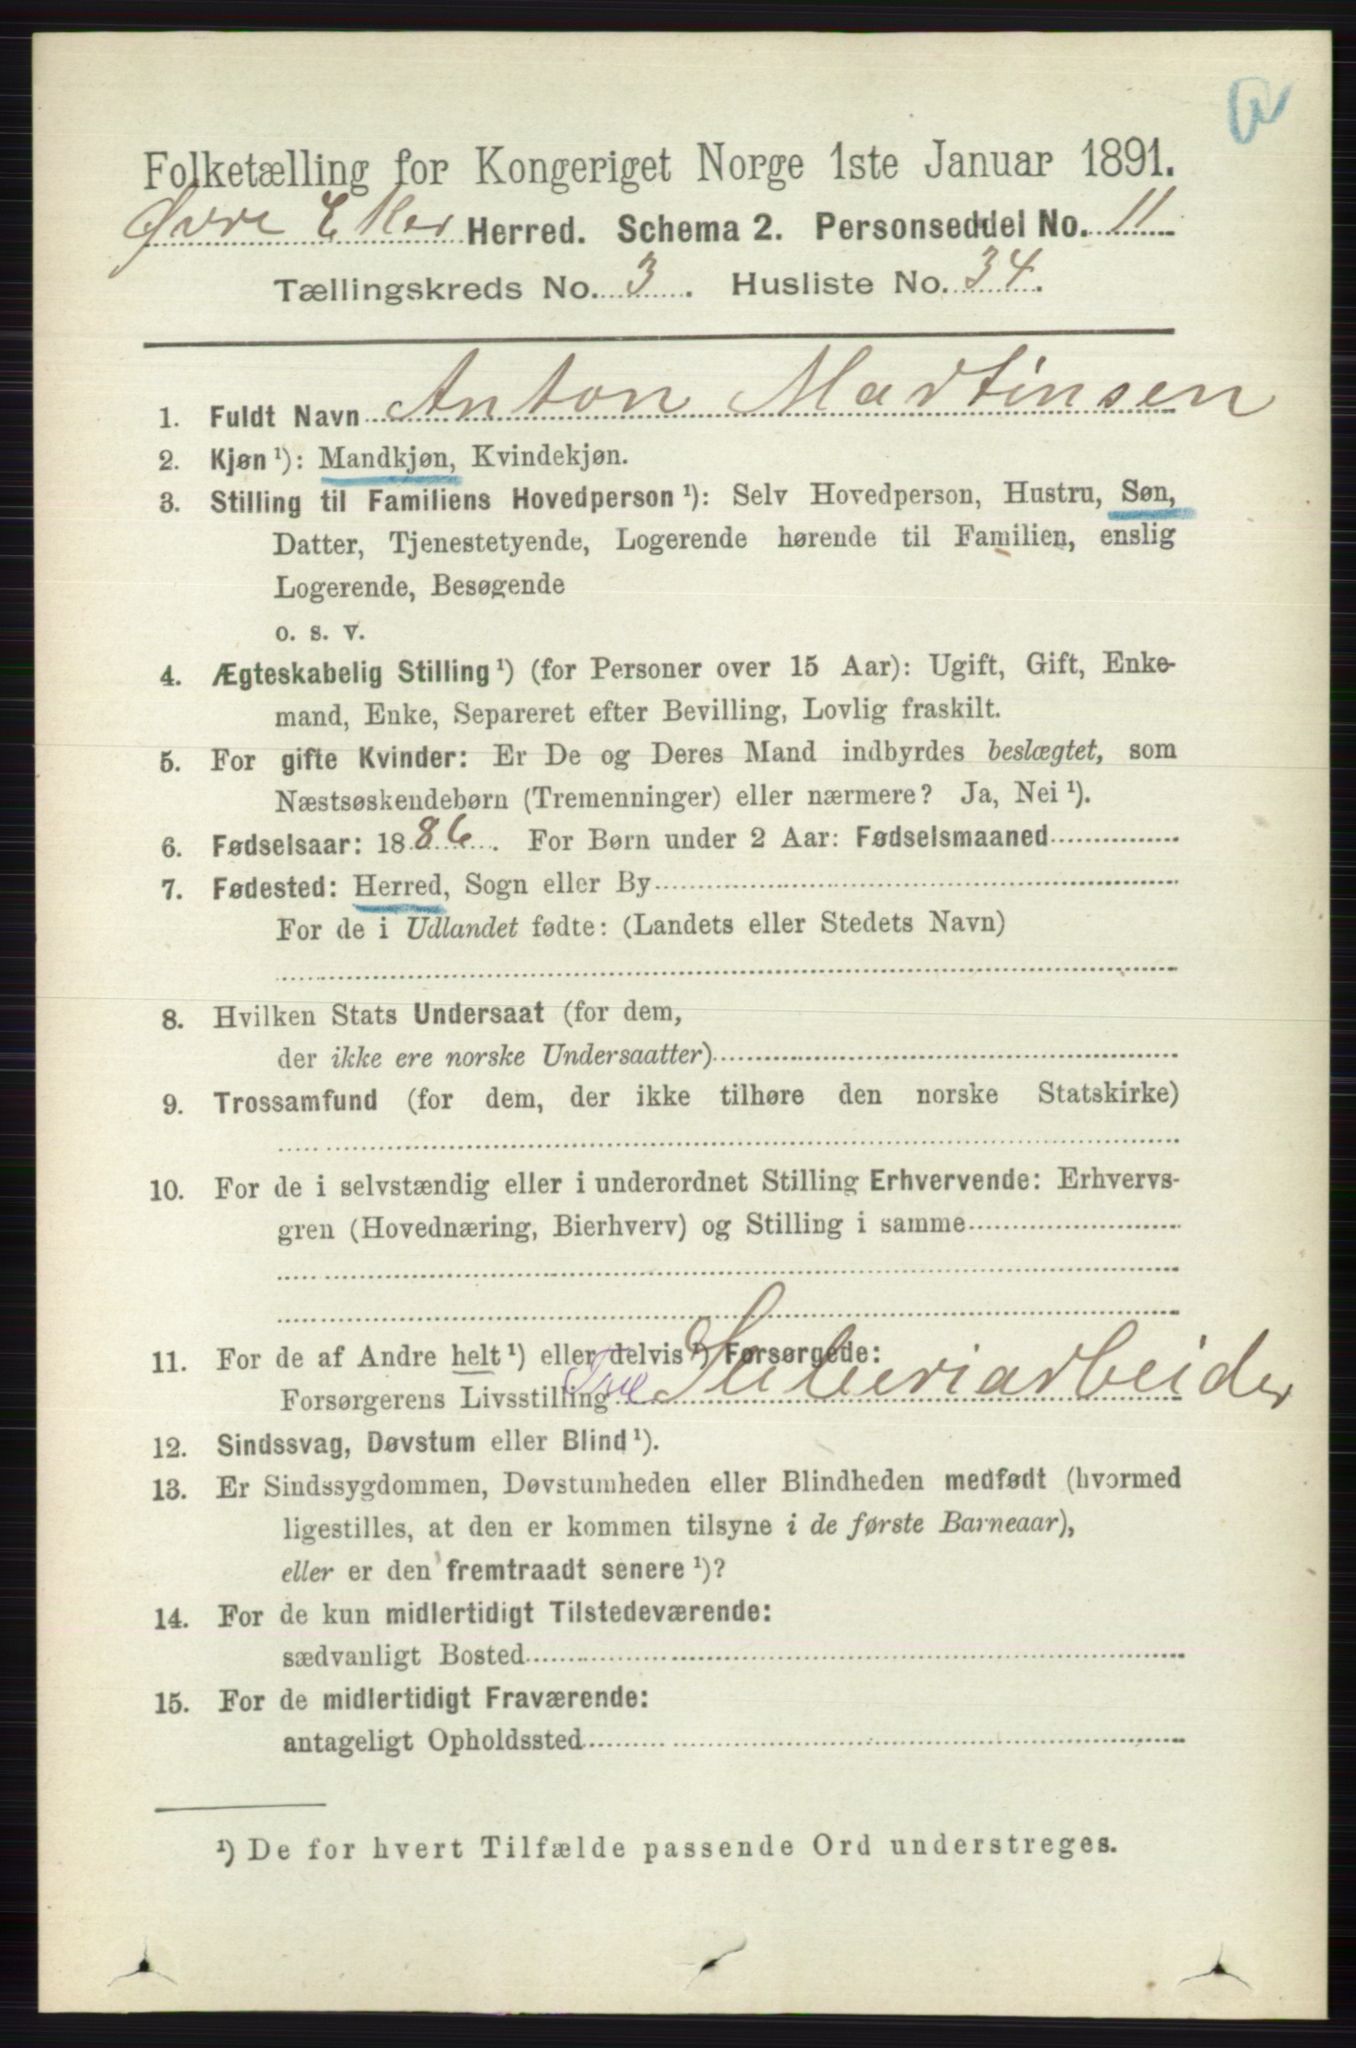 Folketælling for Kongeriget Norge 1ste Januar 1891.
Øvre Eker Herred. Schema 2. Personseddel No. 11
Tællingskreds No. 3. Husliste No. 34.
1. Fuldt Navn Anton Martinsen
2. Kjøn ¹): Mandkjøn, Kvindekjøn.
3. Stilling til Familiens Hovedperson ¹): Selv Hovedperson, Hustru, Søn,
Datter, Tjenestetyende, Logerende hørende til Familien, enslig
Logerende, Besøgende
o. s. v.
4. Ægteskabelig Stilling ¹) (for Personer over 15 Aar): Ugift, Gift, Enke-
mand, Enke, Separeret efter Bevilling, Lovlig fraskilt.
5. For gifte Kvinder: Er De og Deres Mand indbyrdes beslægtet, som
Næstsøskendebørn (Tremenninger) eller nærmere? Ja, Nei ¹).
6. Fødselsaar: 1886. For Børn under 2 Aar: Fødselsmaaned
7. Fødested: Herred, Sogn eller By
For de i Udlandet fødte: (Landets eller Stedets Navn)
8. Hvilken Stats Undersaat (for dem,
der ikke ere norske Undersaatter)
9. Trossamfund (for dem, der ikke tilhøre den norske Statskirke)
10. For de i selvstændig eller i underordnet Stilling Erhvervende: Erhvervs-
gren (Hovednæring, Bierhverv) og Stilling i samme
11. For de af Andre helt ¹) eller delvis ¹) Forsørgede:
Forsørgerens Livsstilling Træ Sliberiarbeider
12. Sindssvag, Døvstum eller Blind ¹).
13. Er Sindssygdommen, Døvstumheden eller Blindheden medfødt (hvormed
ligestilles, at den er kommen tilsyne i de første Barneaar),
eller er den fremtraadt senere ¹)?
14. For de kun midlertidigt Tilstedeværende:
sædvanligt Bosted
15. For de midlertidigt Fraværende:
antageligt Opholdssted
¹) De for hvert Tilfælde passende Ord understreges.